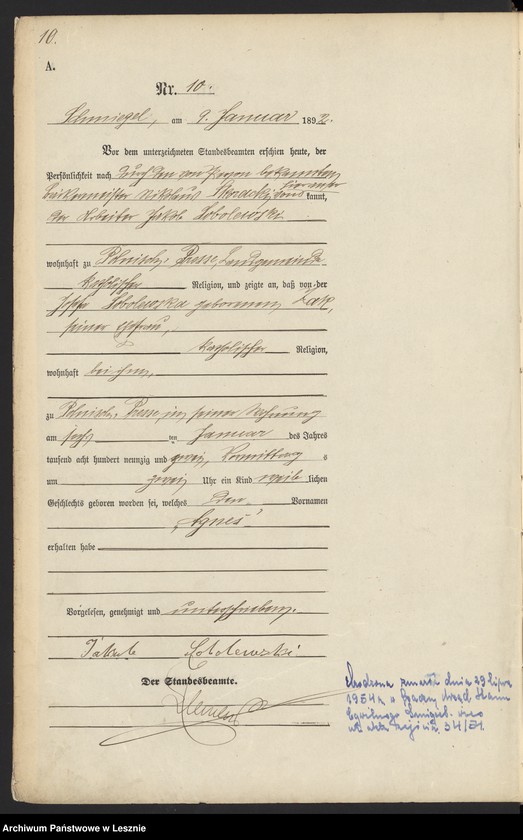 10.
A.
Nr. 10.
Schmiegel, am 9. Januar 1892.
Vor dem unterzeichneten Standesbeamten erschien heute, der
Persönlichkeit nach durch den von Person bekannten
Nikolaus kannt,
der Arbeiter Jakob Sobolewski
wohnhaft zu Polnisch-Presse, Landgemeinde
katholischer Religion, und zeigte an, daß von der
Sobolewska geborenen Żak,
seiner Ehefrau,
katholischer Religion,
wohnhaft bei ihm,
zu Polnisch-Presse, in seiner Wohnung
am sechs ten Januar des Jahres
tausend acht hundert neunzig und zwei, Vormittags
um zwei Uhr ein Kind weib lichen
Geschlechts geboren worden sei, welches den Vornamen
"Agnes"
erhalten habe
Vorgelesen, genehmigt und unterschrieben.
Jakub Sobolewski
Der Standesbeamte.
zmarła dnia 29 lipca
1954 r. Urząd Stanu
Cywilnego Śmigiel
34/54.
Archiwum Państwowe w Lesznie